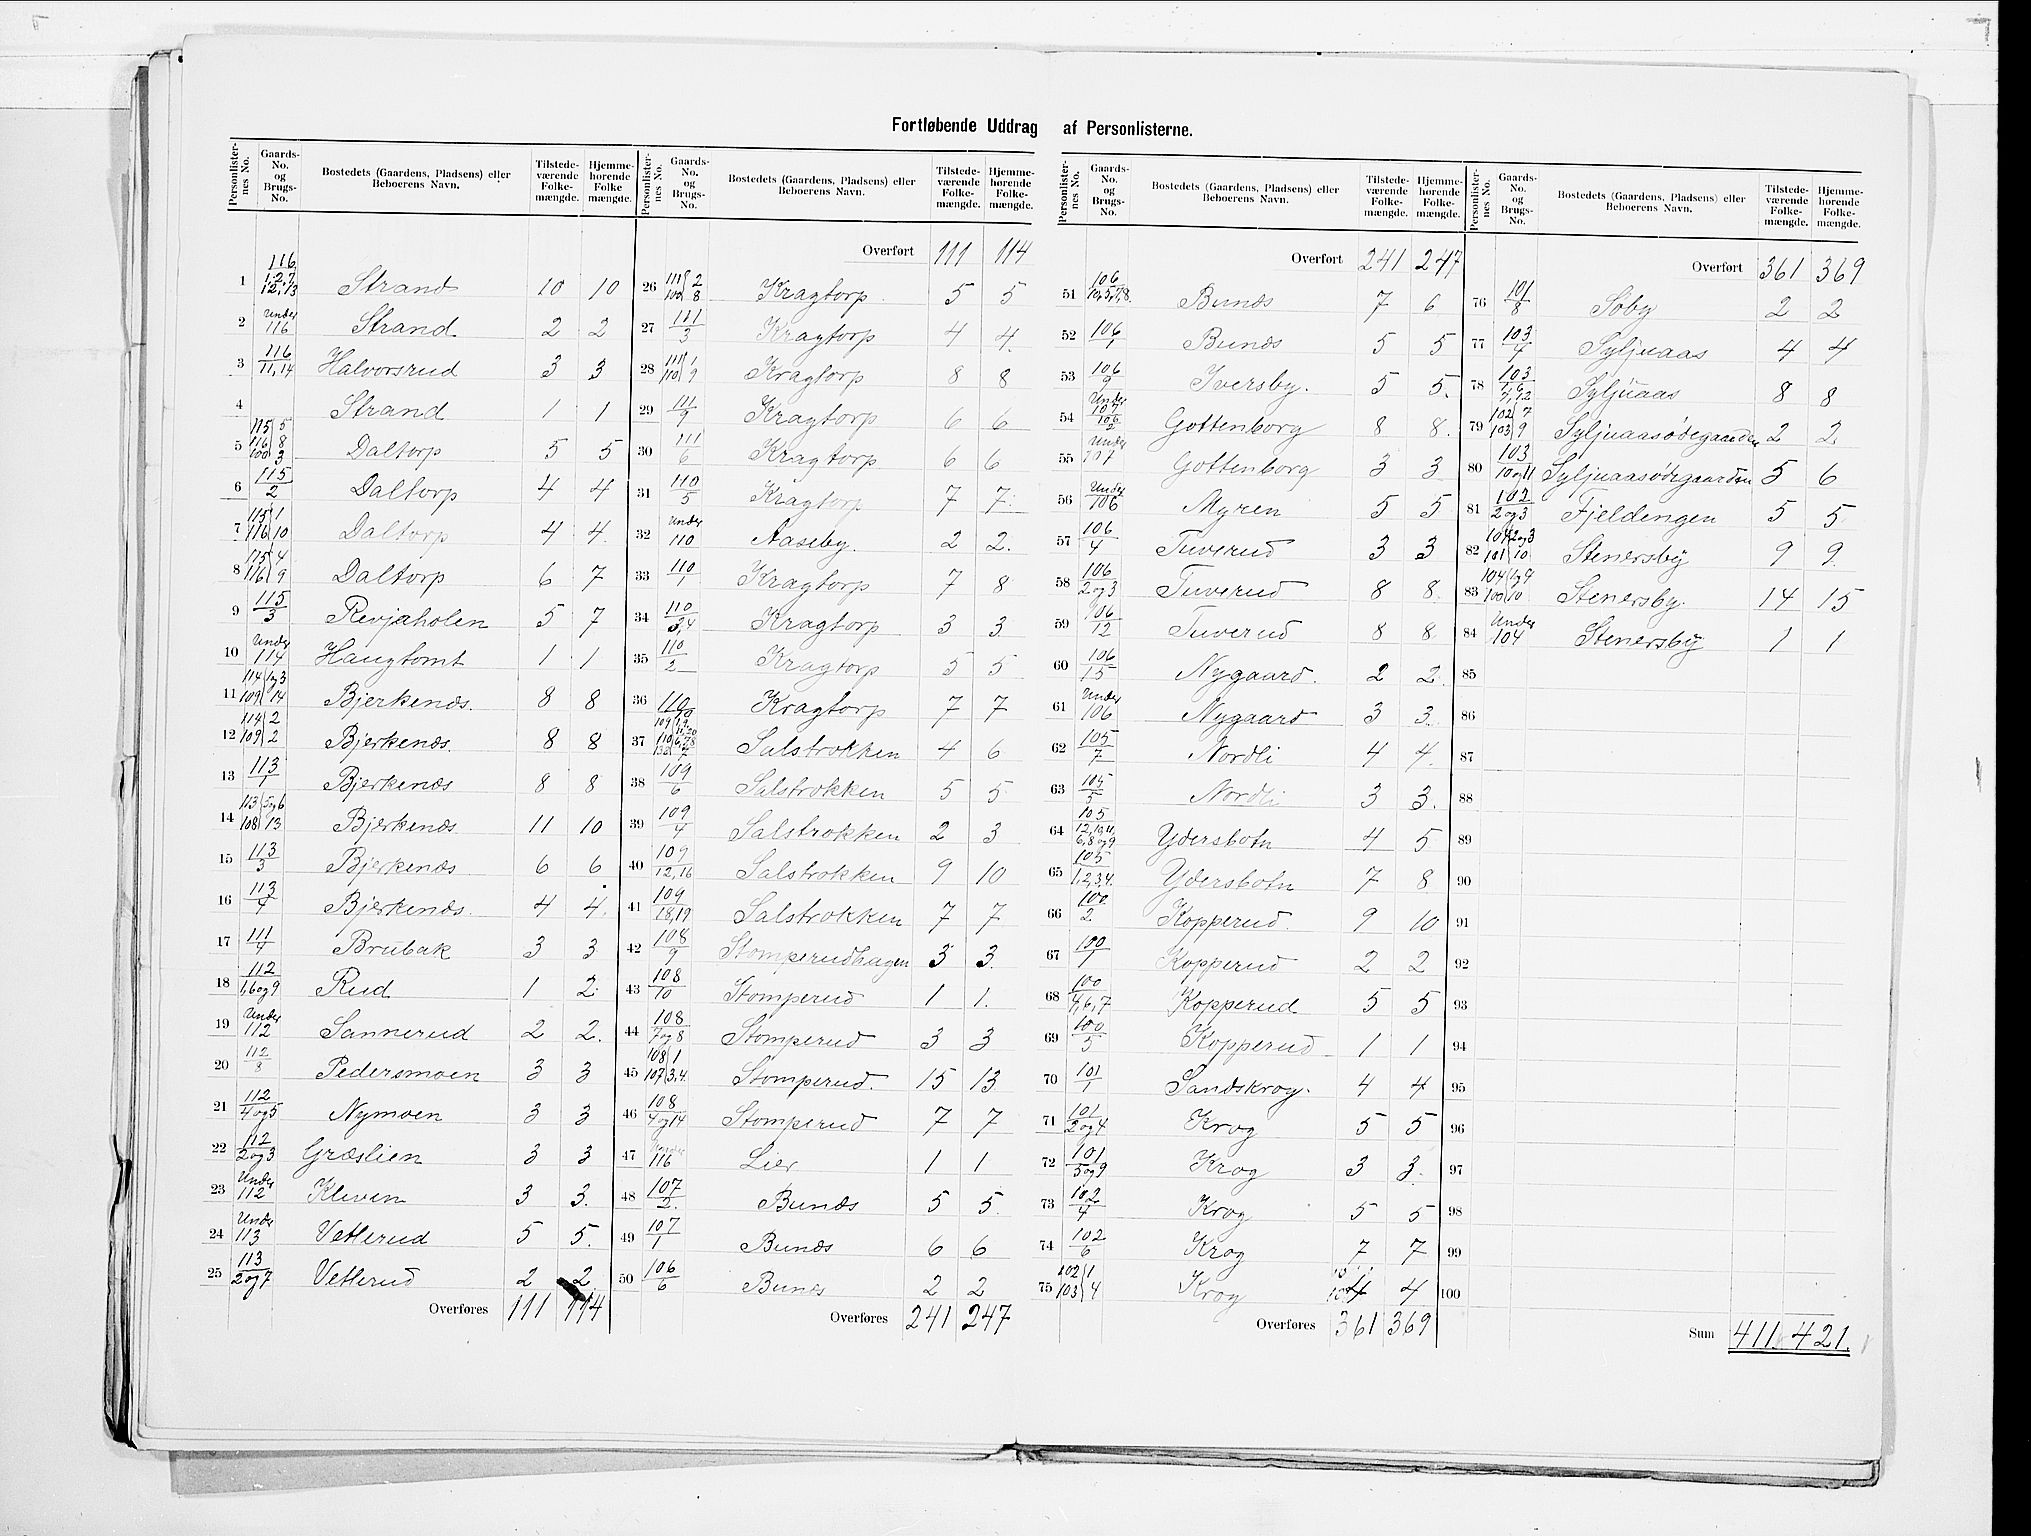 Fortløbende Uddrag af Personlisterne.
Personlister-nes No. | Gaards-No. og Brugs-No. | Bostedets (Gaardens, Pladsens) eller Beboerens Navn. | Tilstede-værende Folke-mængde. | Hjemme-hørende Folke mængde.
1 | 116 / 1,2,7 12,13 | Strand | 10 | 10
2 | Under 116 | Strand | 2 | 2
3 | 116 / 11,14 | Halvorsrud | 3 | 3
4 | Strand | 1 | 1
5 | 115 5 / 116 8 / 100 3 | Daltorp | 5 | 5
6 | 115 / 2 | Daltorp | 4 | 4
7 | 115 1 / 116 10 | Daltorp | 4 | 4.
8 | 115 4 / 116 9 | Daltorp | 6 | 7
9 | 115 / 3 | Revjaholen | 5 | 7
10 | Under 114 | Haugtomt | 1 | 1
11 | 114 1og3 / 109 14 | Bjerkenæs. | 8 | 8
12 | 114 2 / 109 2 | Bjerkenæs. | 8 | 8
13 | 113 / 1 | Bjerkenæs | 8 | 8
14 | 113 5og6 / 108 13 | Bjerkenæs | 11 | 10
15 | 113 / 3 | Bjerkenæs | 6 | 6
16 | 113 / 4 | Bjerkenæs. | 4 | 4.
17 | 111 / 4 | Brubak | 3 | 3
18 | 112 / 1,6og9 | Rud | 1 | 2
19 | Under 112 | Sannerud | 2 | 2.
20 | 112 / 8 | Pedersmoen | 3 | 3
21 | 112 / 4og5 | Nymoen | 3 | 3
22 | 112 / 2og3 | Græslien | 3 | 3
23 | Under 112 | Kleven | 3 | 3.
24 | Under 113 | Vetlerud | 5 | 5.
25 | 113 / 2og7 | Vetlerud | 2 | 2
Overføres | 111 | 114
Personlister-nes No. | Gaards-No. og Brugs-No. | Bostedets (Gaardens, Pladsens) eller Beboerens Navn. | Tilstede-værende Folke-mængde. | Hjemme-hørende Folke-mængde.
Overført | 111 | 114
26 | 111 2 / 100 8 | Kragtorp | 5 | 5
27 | 111 / 3 | Kragtorp | 4 | 4.
28 | 111 1 / 110 9 | Kragtorp | 8 | 8
29 | 111 / 7 | Kragtorp | 6 | 6
30 | 111 / 6 | Kragtorp | 6 | 6
31 | 110 / 5 | Kragtorp | 7 | 7
32 | Under 110 | Aaseby. | 2 | 2.
33 | 110 / 1 | Kragtorp | 7 | 8
34 | 110 / 3,4 | Kragtorp | 3 | 3
35 | 110 / 2 | Kragtorp | 5 | 5
36 | 110 | Kragtorp | 7 | 7
37 | Salstrokken | 4 | 6
38 | 109 / 6 | Salstrokken | 5 | 5
39 | 109 / 4 | Salstrokken | 2 | 3
40 | 109 / 12,16 | Salstrokken | 9 | 10
41 | 109 / 18,19 | Salstrokken | 7 | 7
42 | 108 / 9 | Stomperudhagen | 3 | 3.
43 | 108 / 10 | Stomperud | 1 | 1.
44 | 108 / 7og8 | Stomperud | 3 | 3
45 | 108 1 / 107 3,4. | Stomperud. | 15 | 13
46 | 108 / 4og14 | Stomperud | 7 | 7
47 | Under 116 | Lier | 1 | 1
48 | 107 / 2. | Bunæs | 5 | 5.
49 | 107 / 1 | Bunæs | 6 | 6
50 | 106 / 6 | Bunæs | 2 | 2
Overføres | 241 | 247
Personlister-nes No. | Gaards-No. og Brugs-No. | Bostedets (Gaardens, Pladsens) eller Beboerens Navn. | Tilstede-værende Folke-mængde. | Hjemme-hørende Folke-mængde.
Overført | 241 | 247
51 | 106 / 10,5,7,8. | Bunæs | 7 | 6
52 | 106 / 1 | Bunæs | 5 | 5
53 | 106 / 9 | Iversby. | 5 | 5.
54 | Under 107 / 106 2 | Gottenborg | 8 | 8.
55 | Under 107 | Gottenborg | 3 | 3
56 | Under 106 | Myren | 5 | 5
57 | 106 / 4 | Tuverud | 3 | 3
58 | 106 / 2og3 | Tuverud | 8 | 8.
59 | 106 / 12 | Tuverud | 8 | 8
60 | 106 / 15 | Nygaard. | 2 | 2.
61 | Under 106 | Nygaard | 3 | 3.
62 | 105 / 7 | Nordli | 4 | 4.
63 | 105 / 5 | Nordli | 3 | 3.
64 | 105 / 12,10,11, 6,8og9 | Ydersbotn | 4 | 5
65 | 105 / 1,2,3,4. | Ydersbotn | 7 | 8
66 | 100 / 2 | Kopperud. | 9 | 10
67 | 100 / 1 | Kopperud | 2 | 2
68 | 100 / 4,6,7 | Kopperud | 5 | 5
69 | 100 / 5 | Kopperud | 1 | 1
70 | 101 / 1 | Sandskrog. | 4 | 4
71 | 101 / 2og4 | Krog | 5 | 5
72 | 101 / 5og9 | Krog | 3 | 3.
73 | 102 / 4 | Krog | 5 | 5
74 | 102 / 6 | Krog | 7 | 7
75 | 102 1 / 103 4 | Krog | 4 | 4
Overføres | 361 | 369
Personlister-nes No. | Gaards-No. og Brugs-No. | Bostedets (Gaardens, Pladsens) eller Beboerens Navn. | Tilstede-værende Folke-mængde. | Hjemme-hørende Folke-mængde.
Overført | 361 | 369
76 | 101 / 8 | Soby | 2 | 2
77 | 103 / 4 | Syljuaas | 4 | 4
78 | 103 / 1,6 7,12 | Syljuaas | 8 | 8
79 | 102 7 / 103 9 | Syljuaasødegaarden | 2 | 2.
80 | 103 / 10og11 | Syljuaasødegaarden | 5 | 6
81 | 102 / 2og3 | Fjeldengen | 5 | 5
82 | 104 2og3 / 101 10 | Stenersby | 9 | 9.
83 | 104 1og4 / 100 10 | Stenersby. | 14 | 15
84 | Under 104 | Stenersby | 1 | 1
85
86
87
88
89
90
91
92
93
94
95
96
97
98
99
100
Sum | 411. | 421.